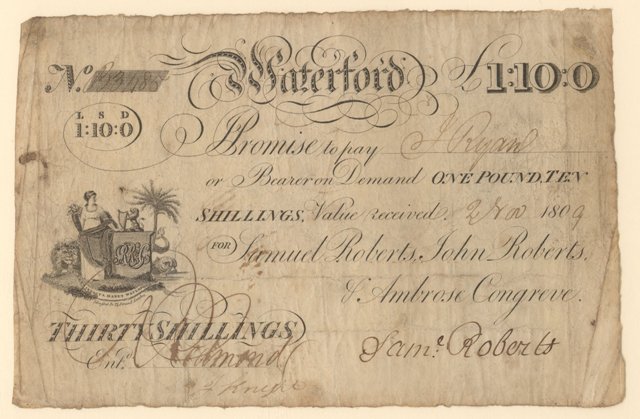 No. Waterford £1:10:0
L S D
1:10:0
I Promise to pay J Ryan
or Bearer on Demand ONE POUND, TEN
SHILLINGS, Value received. 2 Nov 1809
FOR Samuel Roberts, John Roberts,
& Ambrose Congreve.
THIRTY SHILLINGS
Entd. Redmond Saml. Roberts